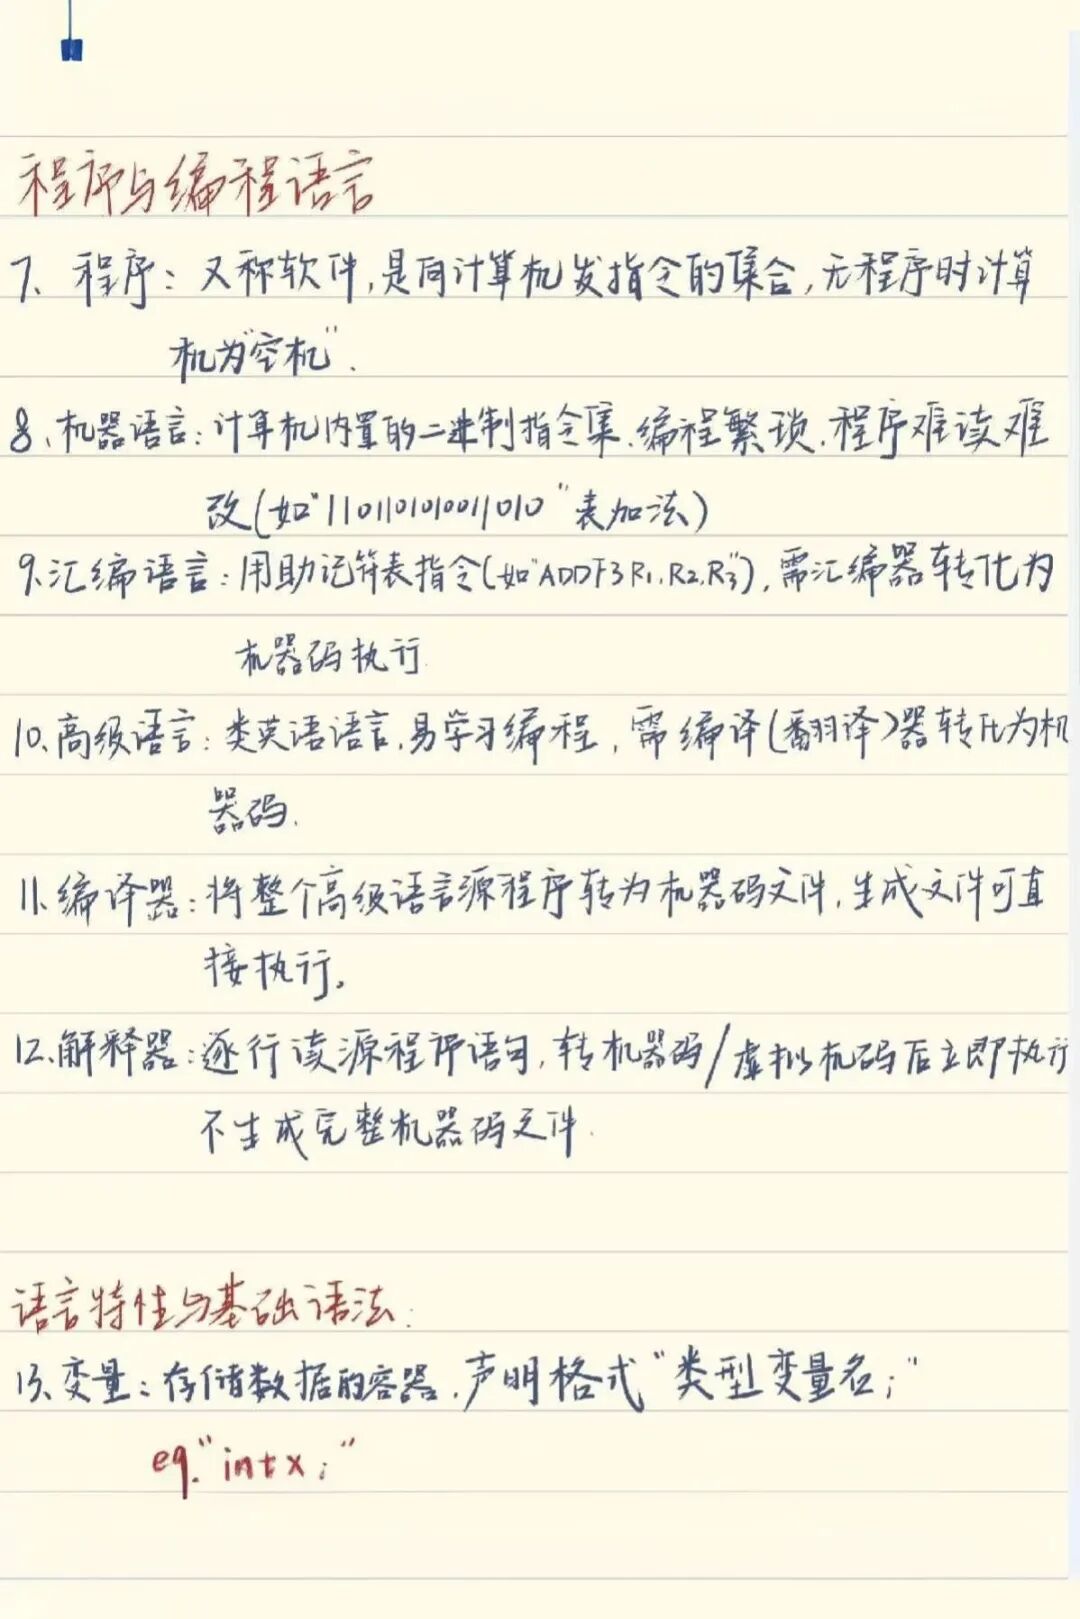 程序与编程语言
7、程序：又称软件,是向计算机发指令的集合,无程序时计算
机为"空机".
8、机器语言：计算机内置的二进制指令集、编程繁琐、程序难读难
改(如"1101101010011010"表加法)
9、汇编语言：用助记符表指令(如"ADDF3 R1,R2,R3"),需汇编器转化为
机器码执行.
10、高级语言：类英语语言,易学习编程,需编译(翻译)器转化为机
器码.
11、编译器：将整个高级语言源程序转为机器码文件,生成文件可直
接执行。
12、解释器：逐行读源程序语句,转机器码/虚拟机码后立即执行
不生成完整机器码文件.
语言特性与基础语法：
13、变量：存储数据的容器,声明格式"类型变量名；"
eg."int x；"